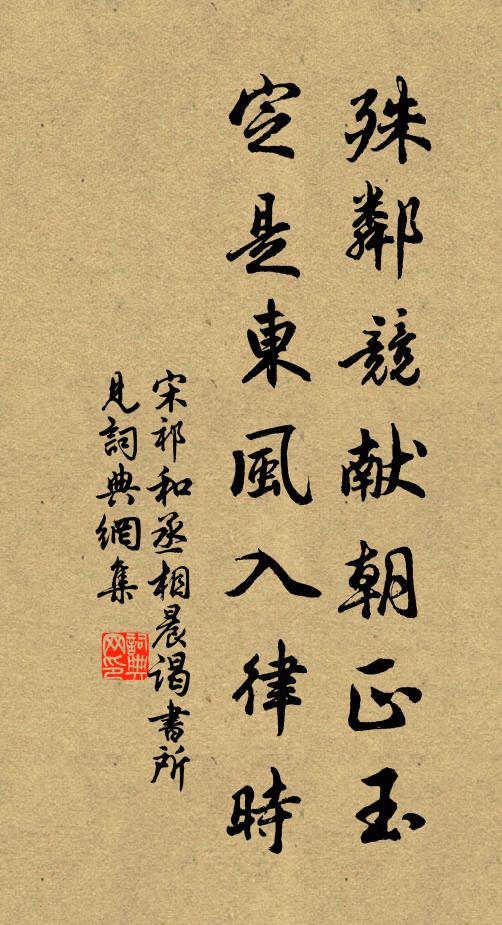 殊鄰競献朝正玉
定是東風入律時
宋祁和丞相晨谒書所
見詞典網集
詞典网印